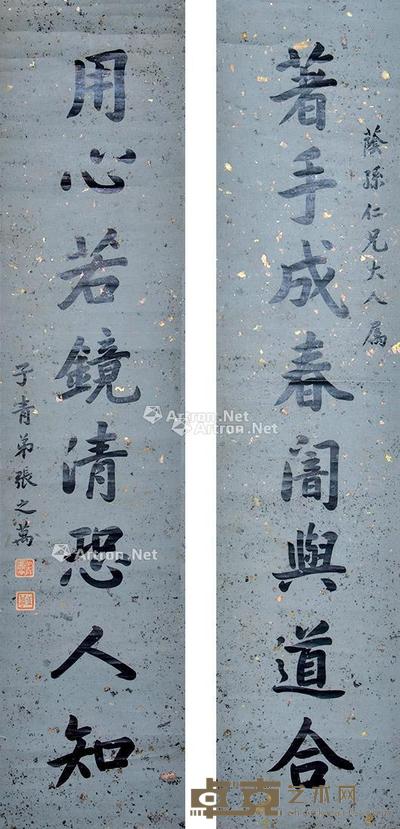 蔭孫仁兄大人屬
著手成春闇與道合
用心若鏡清恐人知
子青弟張之萬
Artron.Net
Artron.Net
Artron.Net
Artron.Net
卓克艺术网